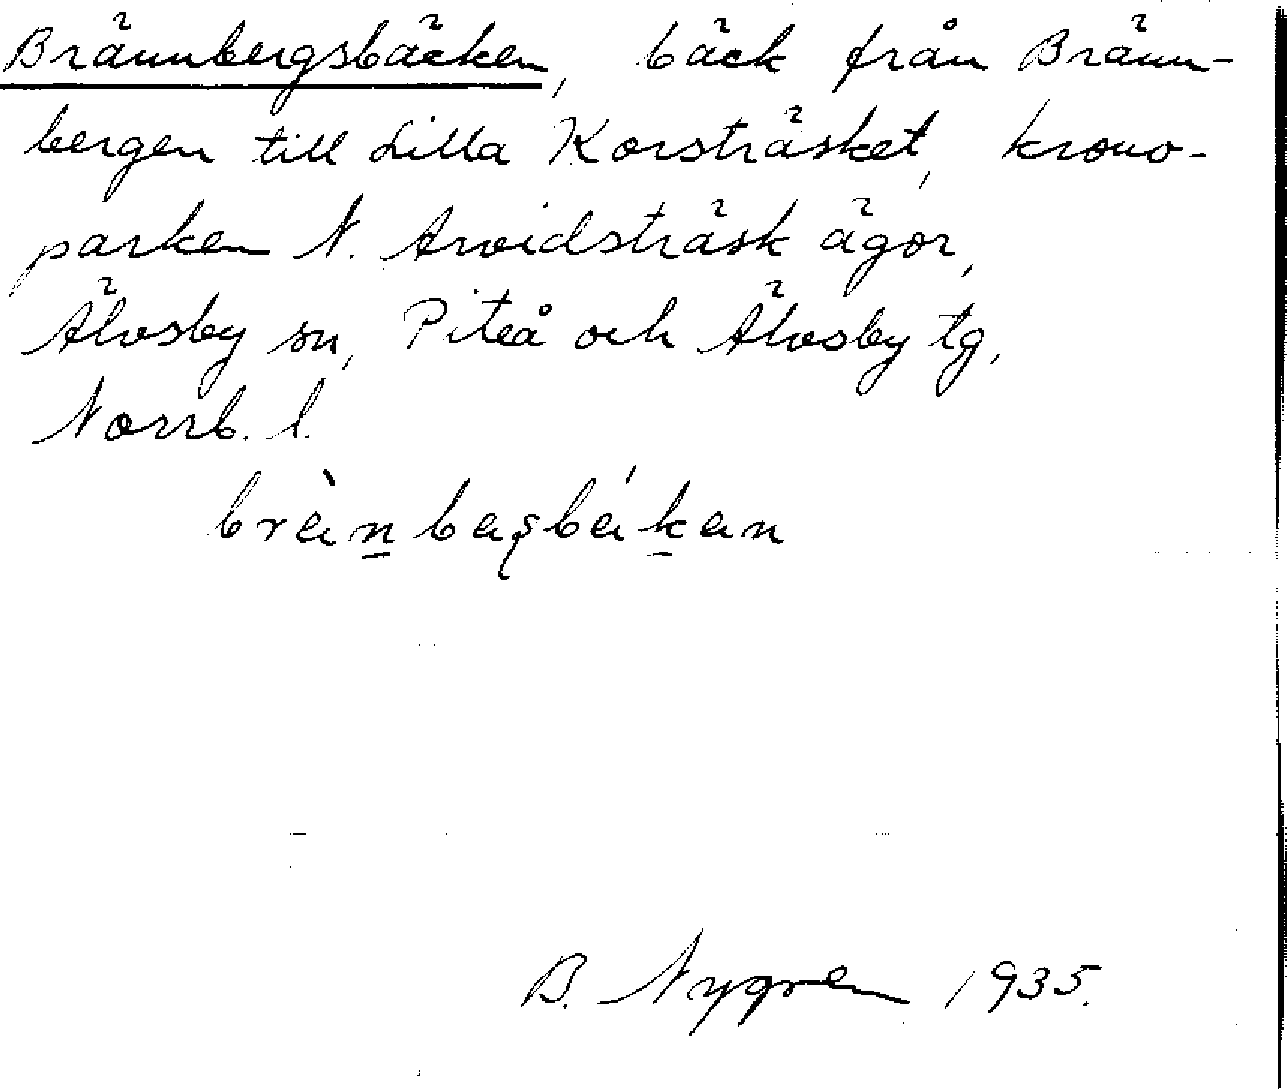 Brännbergsbäcken, bäck från Bränn-
bergen till Lilla Korsträsket, krono-
parken N. Arvidsträsk ägor,
Älvsby sn, Piteå och Älvsby tg,
Norrb. l.
B. Nygren 1935.